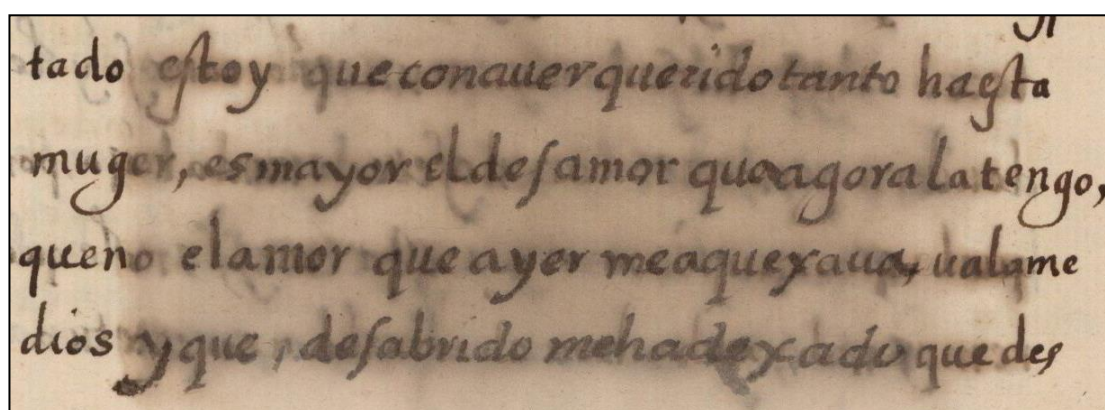 tado estoy que con auer querido tanto ha esta
muger, es mayor el desamor que agora la tengo,
que no el amor que ayer me aquexaua, ualame
dios y que, desabrido me ha dexado que des